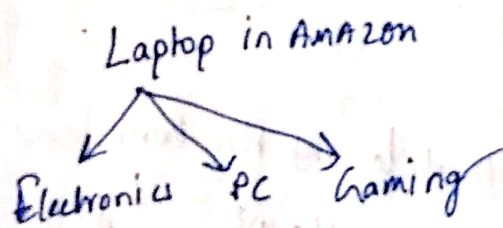 Laptop in AMAZON
Electronics PC Gaming